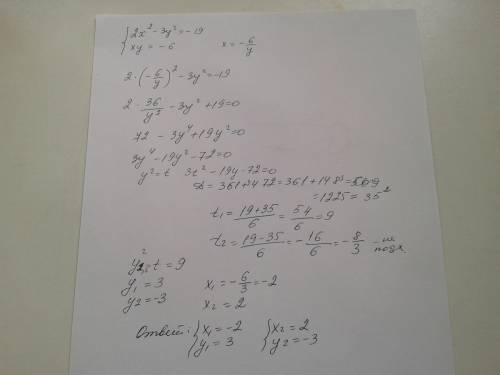 {2x² - 3y² = -19
xy = -6    x = -6/y
2·(-6/y)² - 3y² = -19
2·36/y² - 3y² + 19 = 0
72 - 3y⁴ + 19y² = 0
3y⁴ - 19y² - 72 = 0
y² = t  3t² - 19y - 72 = 0
= 1225 = 35²
t₁ = (19+35)/6 = 54/6 = 9
t₂ = (19-35)/6 = -16/6 = -8/3 - не подх.
t = 9
y₁ = 3    x₁ = -6/3 = -2
y₂ = -3    x₂ = 2
Ответ: {x₁ = -2    {x₂ = 2
y₁ = 3    y₂ = -3